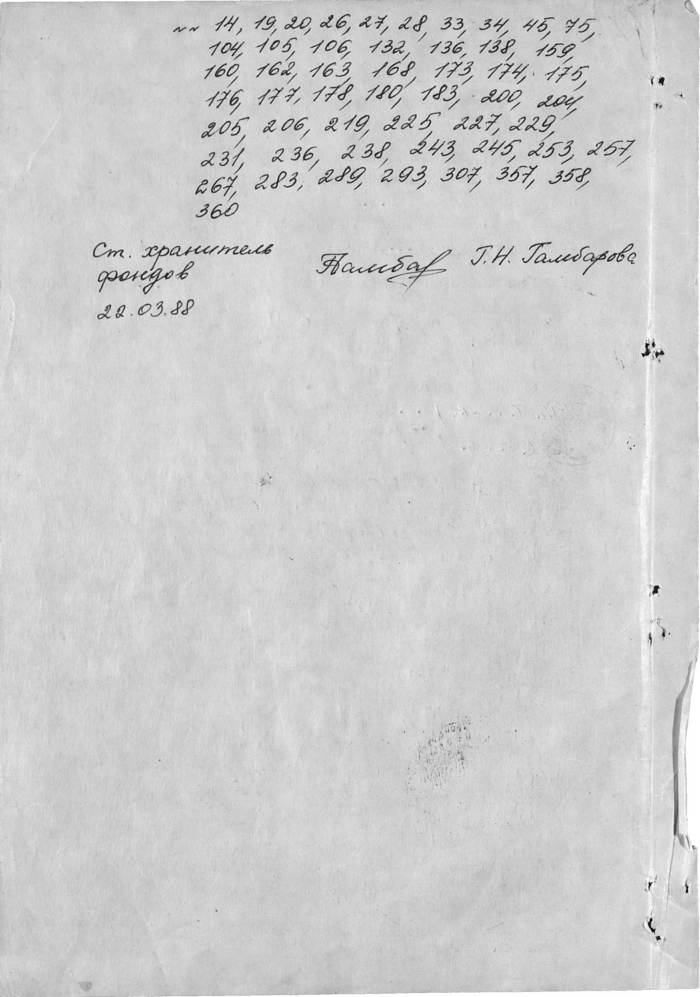 №№ 14, 19, 20, 26, 27, 28, 33, 34, 45, 75,
104, 105, 106, 132, 136, 138, 159,
160, 162, 163, 168, 173, 174, 175,
176, 177, 178, 180, 183, 200, 204,
205, 206, 219, 225, 227, 229,
231, 236, 238, 243, 245, 253, 257,
267, 283, 289, 293, 307, 357, 358,
360
Ст. хранитель
фондов
Г.Н. Гамбарова
22.03.88